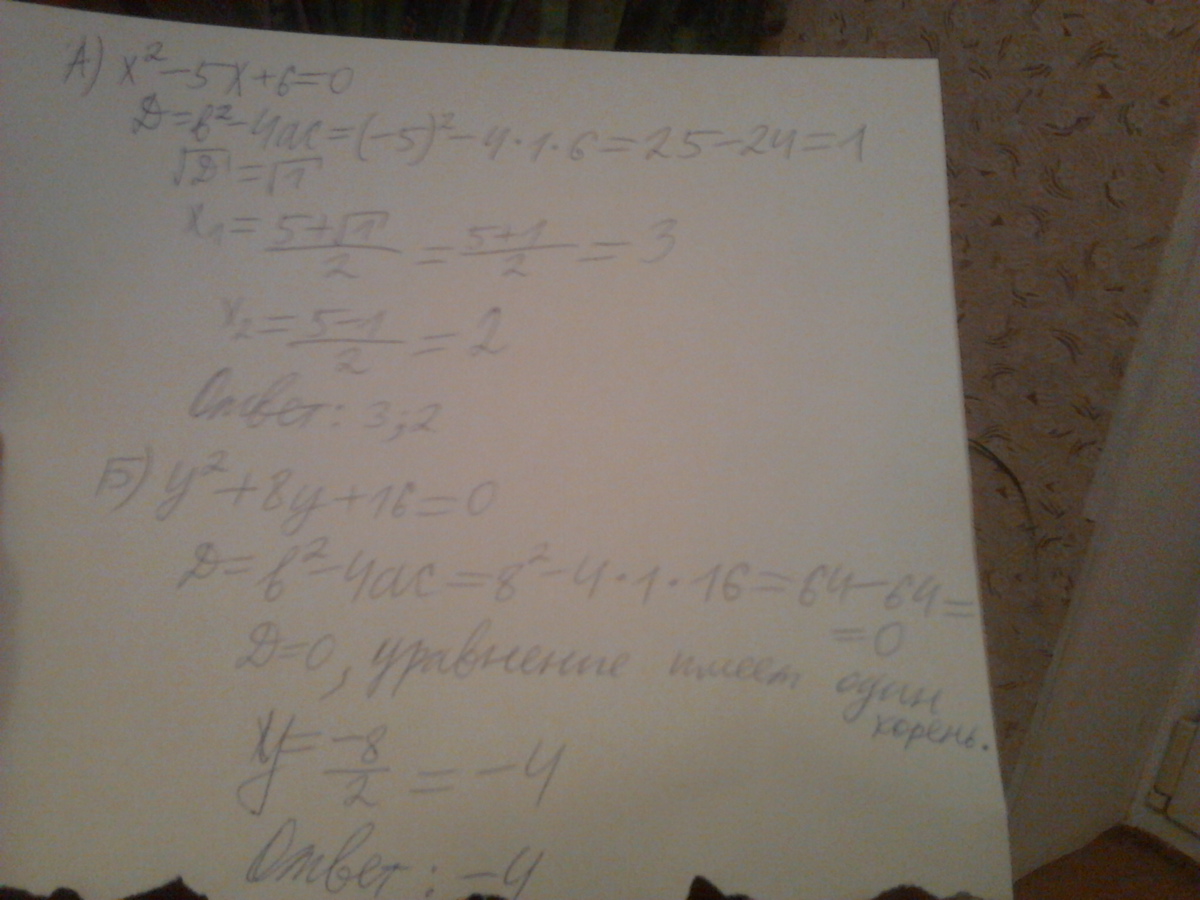 А) x²-5x+6=0
D=b²-4ac=(-5)²-4·1·6=25-24=1
√D=√1
x₁=(5+√1)/2=(5+1)/2=3
x₂=(5-1)/2=2
Ответ: 3;2
Б) y²+8y+16=0
D=b²-4ac=8²-4·1·16=64-64=
=0
D=0, уравнение имеет один
корень.
y=-8/2=-4
Ответ: -4